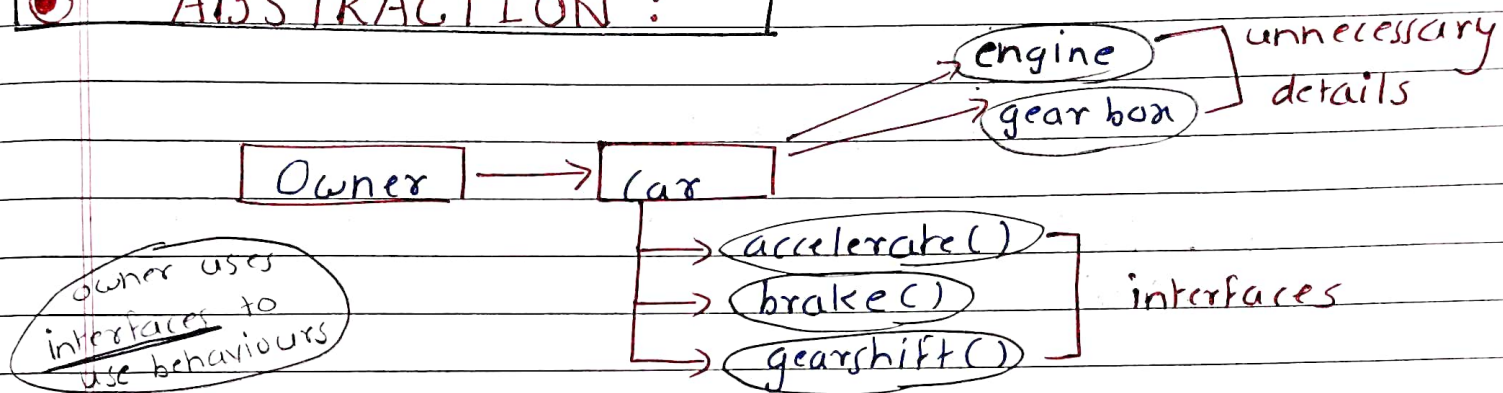 ABSTRACTION :
engine
gear box
unnecessary
details
Owner
Car
accelerate()
brake()
gearshift()
interfaces
owner uses
interfaces to
use behaviours